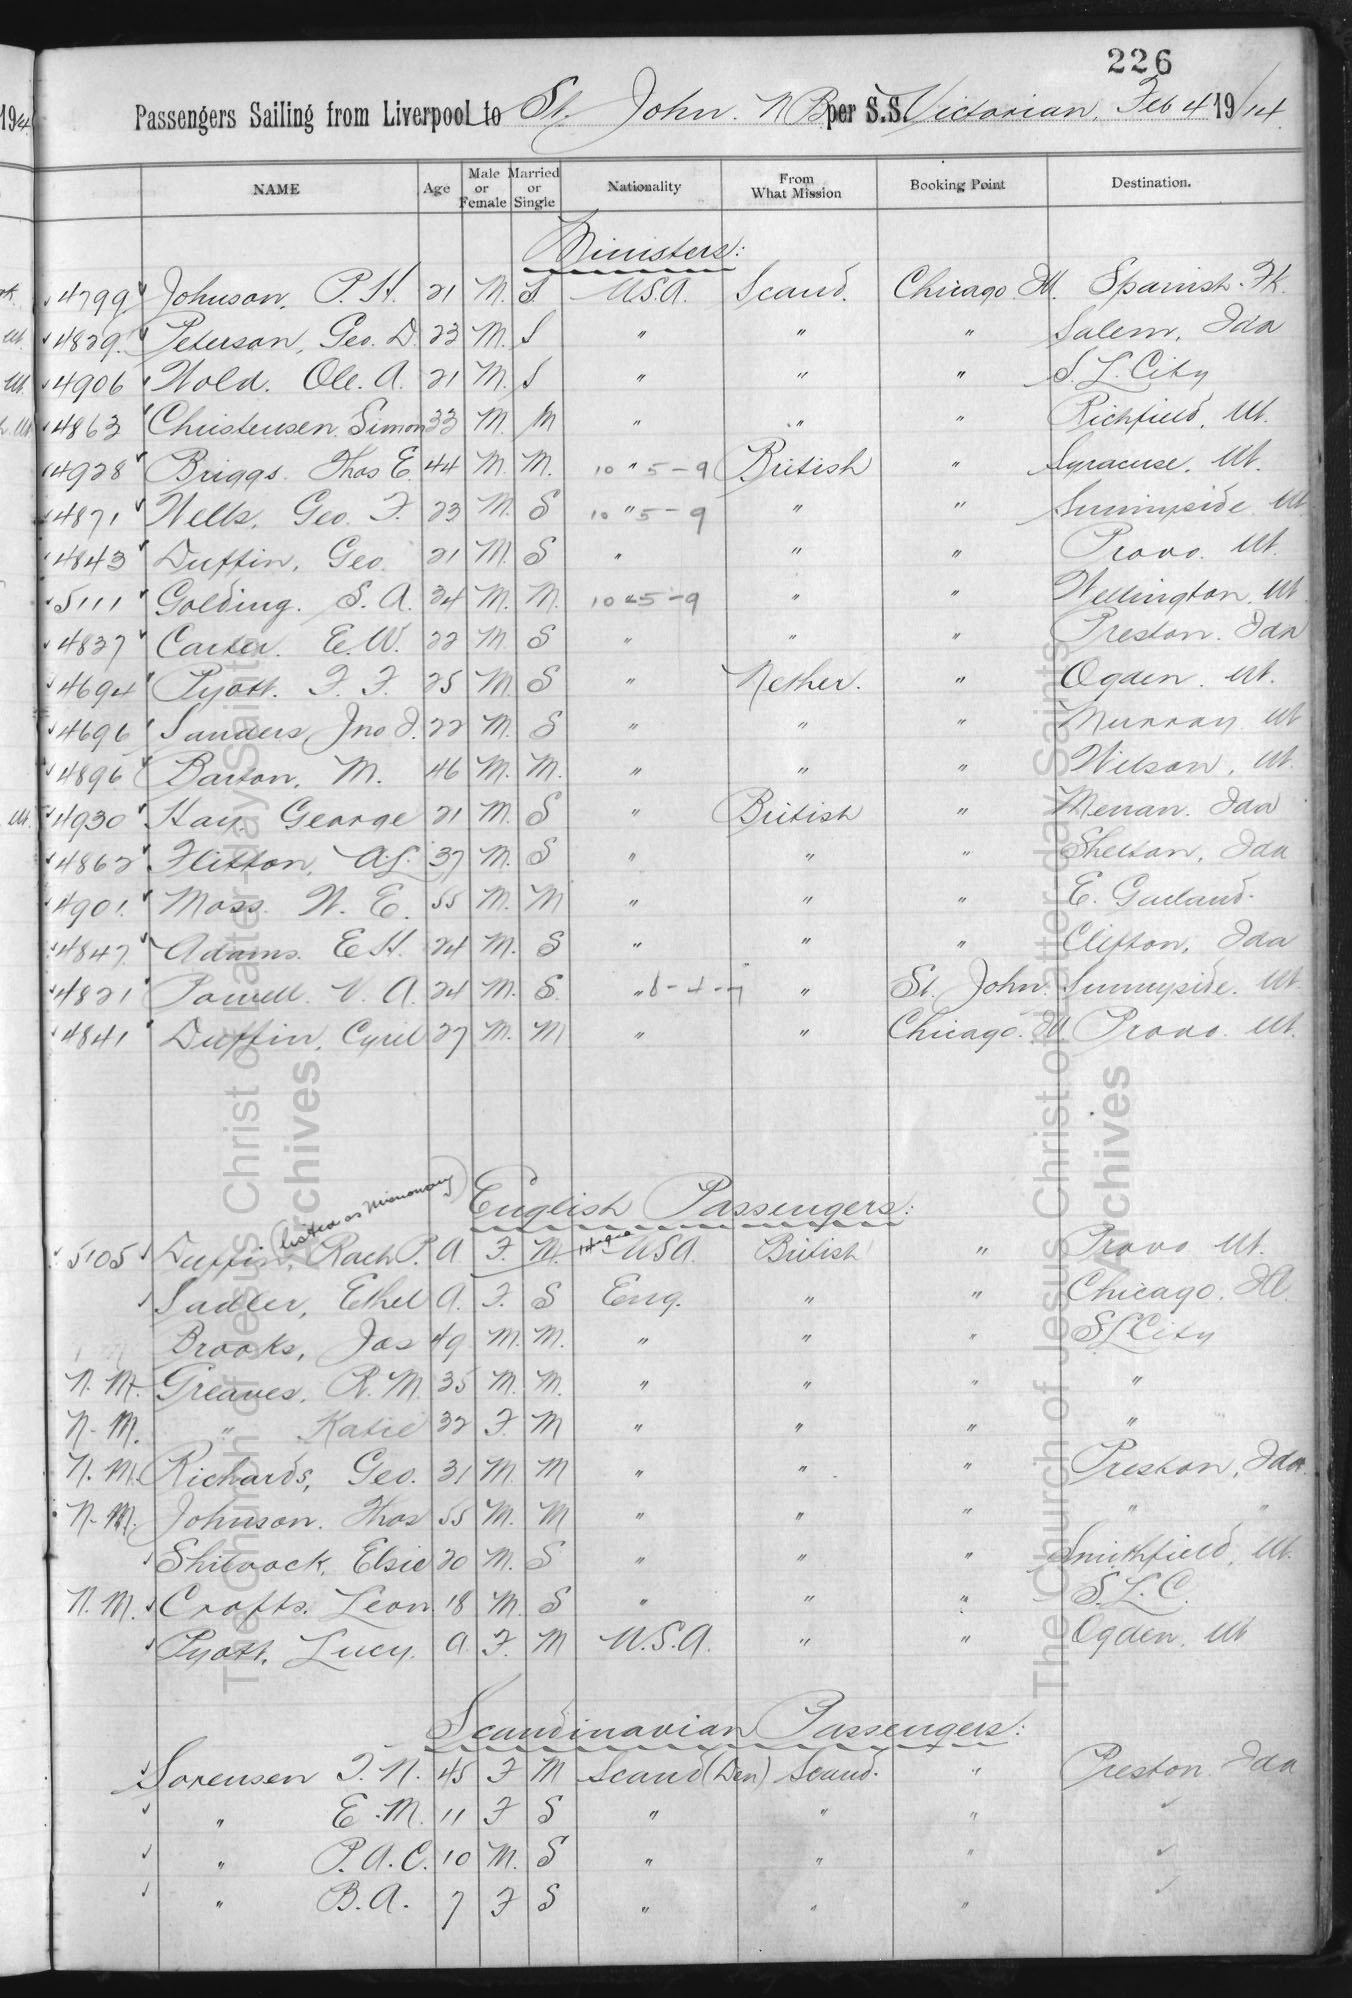 226
Passengers Sailing from Liverpool to St. John. N B per S.S. Victorian, Feb 4 1914
NAME Age Male or Female Married or Single Nationality From What Mission Booking Point Destination.
Ministers:
4799 Johnson, P. H. 21 M. S. U.S.A. Scand. Chicago. Ill. Spanish. Fk.
4829. Peterson, Geo. D. 23 M. S " " " Salem, Ida
4906 Wold. Ole. A. 21 M. S " " " S. L. City
4863 Christensen. Simon 33 M. M " " " Richfield, Ut.
4928 Briggs. Thos E. 44 M. M. 10 " 5-9 British " Syracuse. Ut.
4871 Wells, Geo. F. 23 M. S 10 " 5-9 " " Sunnyside Ut
4843 Duffin, Geo. 21 M. S " " " Provo. Ut.
5111 Golding. S. A. 34 M. M. 10 " 5-9 " " Wellington, Ut.
4837 Carter. E. W. 22 M. S " " " Preston. Ida
4694 Pyott. F. F. 25 M. S " Nether. " Ogden. Ut.
4696 Sanders, Jno J. 22 M. S " " " Murray. Ut
4896 Barton, M. 46 M. M. " " " Wilson, Ut.
4930 Hay. George 21 M. S " British " Menan. Ida
4862 Flitton, A.L. 37 M. S " " " Shelton, Ida
4901. Moss. W. E. 55 M. M " " " E. Garland.
4847 Adams. E H. 24 M. S " " " Clifton, Ida
4821 Powell. V. A. 24 M. S. " " St. John. Sunnyside. Ut.
4841 Duffin, Cyril 27 M. M " " Chicago. Ill Provo. Ut.
English Passengers:
5105 Duffin, (listed as Missionary) Rach P. A F. M. U.S.A. British " Provo Ut.
Sadler, Ethel A. F. S Eng. " " Chicago. Ill.
Brooks, Jas 49 M. M. " " " S L City
N. M. Greaves, R. M. 35 M. M. " " " "
N. M. " Katie 32 F. M " " " "
N. M. Richards, Geo. 31 M. M " " " Preston, Ida.
N. M. Johnson. Thos 55 M. M " " " " "
Shilvock, Elsie 20 M. S " " " Smithfield, Ut.
N. M. Crofts. Leon 18 M. S " " " S. L. C.
Pyott, Lucy. A. F. M U.S.A. " " Ogden, Ut
Scandinavian Passengers:
Sorensen T. N. 45 F M Scand (Den) Scand. " Preston. Ida
" E. M. 11 F S " " "
" P. A. C. 10 M. S " " "
" B. A. 7 F S " " "
The Church of Jesus Christ of Latter-day Saints
Archives
The Church of Jesus Christ of Latter-day Saints
Archives